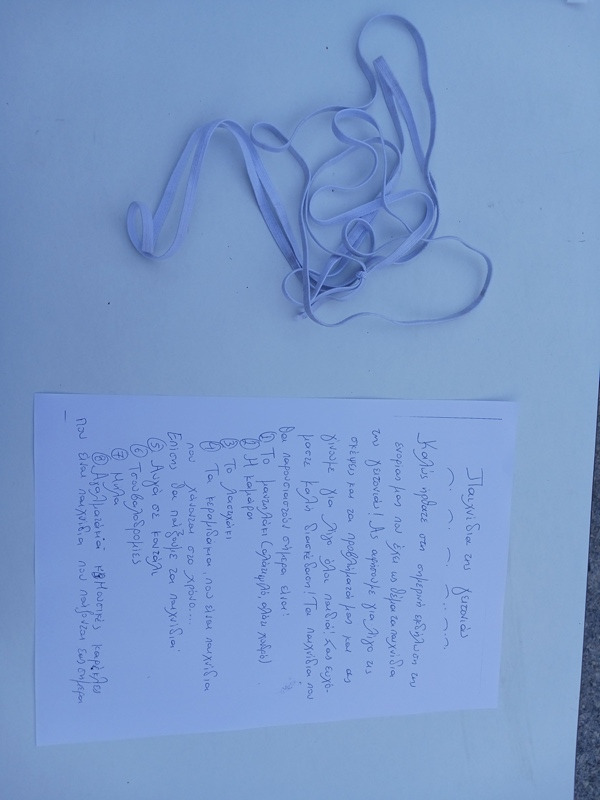 Παιχνίδια της γειτονιάς
Καλώς ήρθατε στη σημερινή εκδήλωση της
ενορίας μας που έχει ως θέμα τα παιχνίδια
της γειτονιάς! Ας αφήσουμε για λίγο τις
σκέψεις και τα προβλήματά μας και ας
γίνουμε για λίγο όλοι παιδιά! Σας ευχό-
μαστε καλή διασκέδαση! Τα παιχνίδια που
θα παρουσιαστούν σήμερα είναι:
① Το μαντηλάκι (αλάτι ψιλό, αλάτι χοντρό)
② Η καμάρα
③ Το λαστιχάκι
④ Τα κεραμιδάκια, που είναι παιχνίδια
που χάνονται στο χρόνο...
Επίσης θα παίξουμε τα παιχνίδια:
⑤ Αυγό σε κουτάλι
⑥ Τσουβαλοδρομίες
⑦ Μήλα
⑧ Αγαλματάκια Μουσικές καρέκλες
που είναι παιχνίδια που παίζονται έως σήμερα